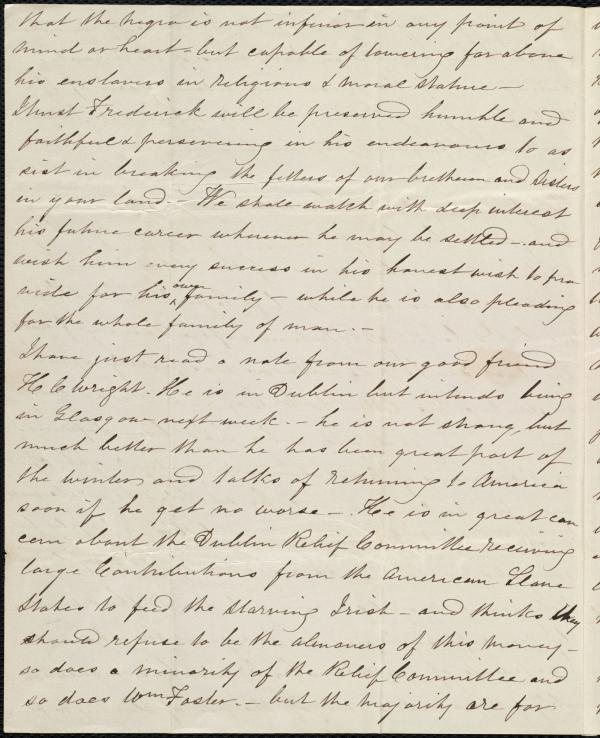 that the negro is not inferior in any point of
mind or heart - but capable of towering far above
his enslavers in religious & moral stature -
I trust Frederick will be preserved humble and
faithful & persevering in his endeavours to as
sist in breaking the fetters of our bretheren and Sisters
in your land. - We shall watch with deep interest
his future career wherever he may be settled - and
wish him every success in his honest wish to pro
vide for his own family - while he is also pleading
for the whole family of man. -
I have just read a note from our good friend
H C Wright. He is in Dublin but intends being
in Glasgow next week. - he is not strong, but
much better than he has been great part of
the winter and talks of returning to America
soon if he get no worse - He is in great con
cern about the Dublin Relief Committee receiving
large Contributions from the American Slave
States to feed the starving Irish - and thinks they
should refuse to be the almoners of this money -
so does a minority of the Relief Committee and
so does Wm Foster. - but the majority are for